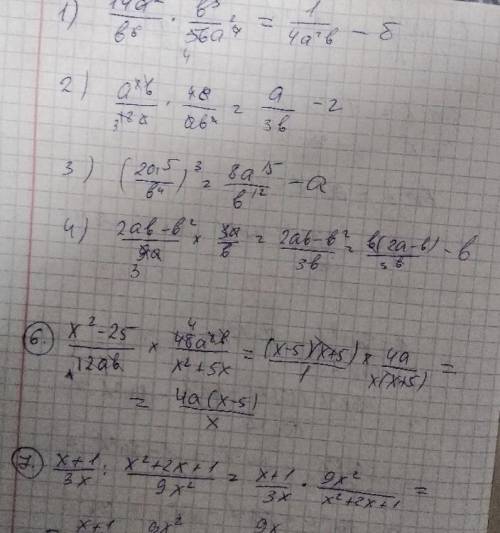 1) 14a / b⁵ · b / 56a⁴ = 1 / 4a²b - б
4
2) a²b / 12a · 4a / ab² = a / 3b - г
3
3) (2a⁵ / b⁴)³ = 8a¹⁵ / b¹² - а
4) 2ab-b² / 9a × 3a / b = 2ab-b² / 3b = b(2a-b) / 3b - в
3
4
6. x²-25 / 12ab × 48a²b / x²+5x = (x-5)(x+5) / 1 × 4a / x(x+5) =
= 4a(x-5) / x
7. x+1 / 3x : x²+2x+1 / 9x² = x+1 / 3x · 9x² / x²+2x+1 =
= x+1 9x² 9x